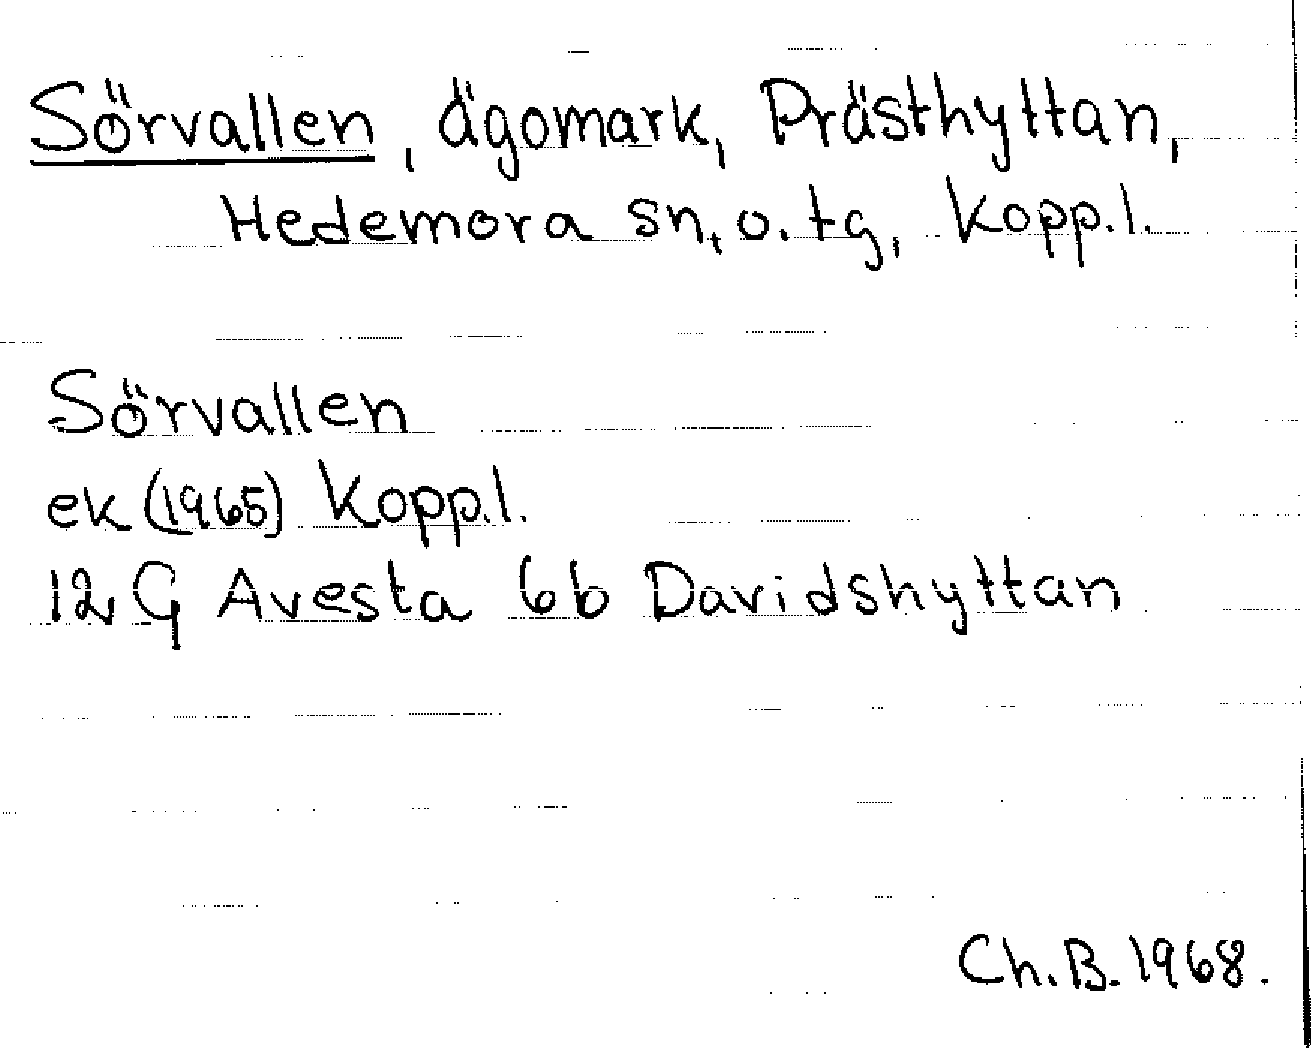 Sörvallen, ägomark, Prästhyttan,
Hedemora sn, o. tg, Kopp.l.
Sörvallen
ek (1965) Kopp.l.
12 G Avesta 6b Davidshyttan
Ch.B. 1968.